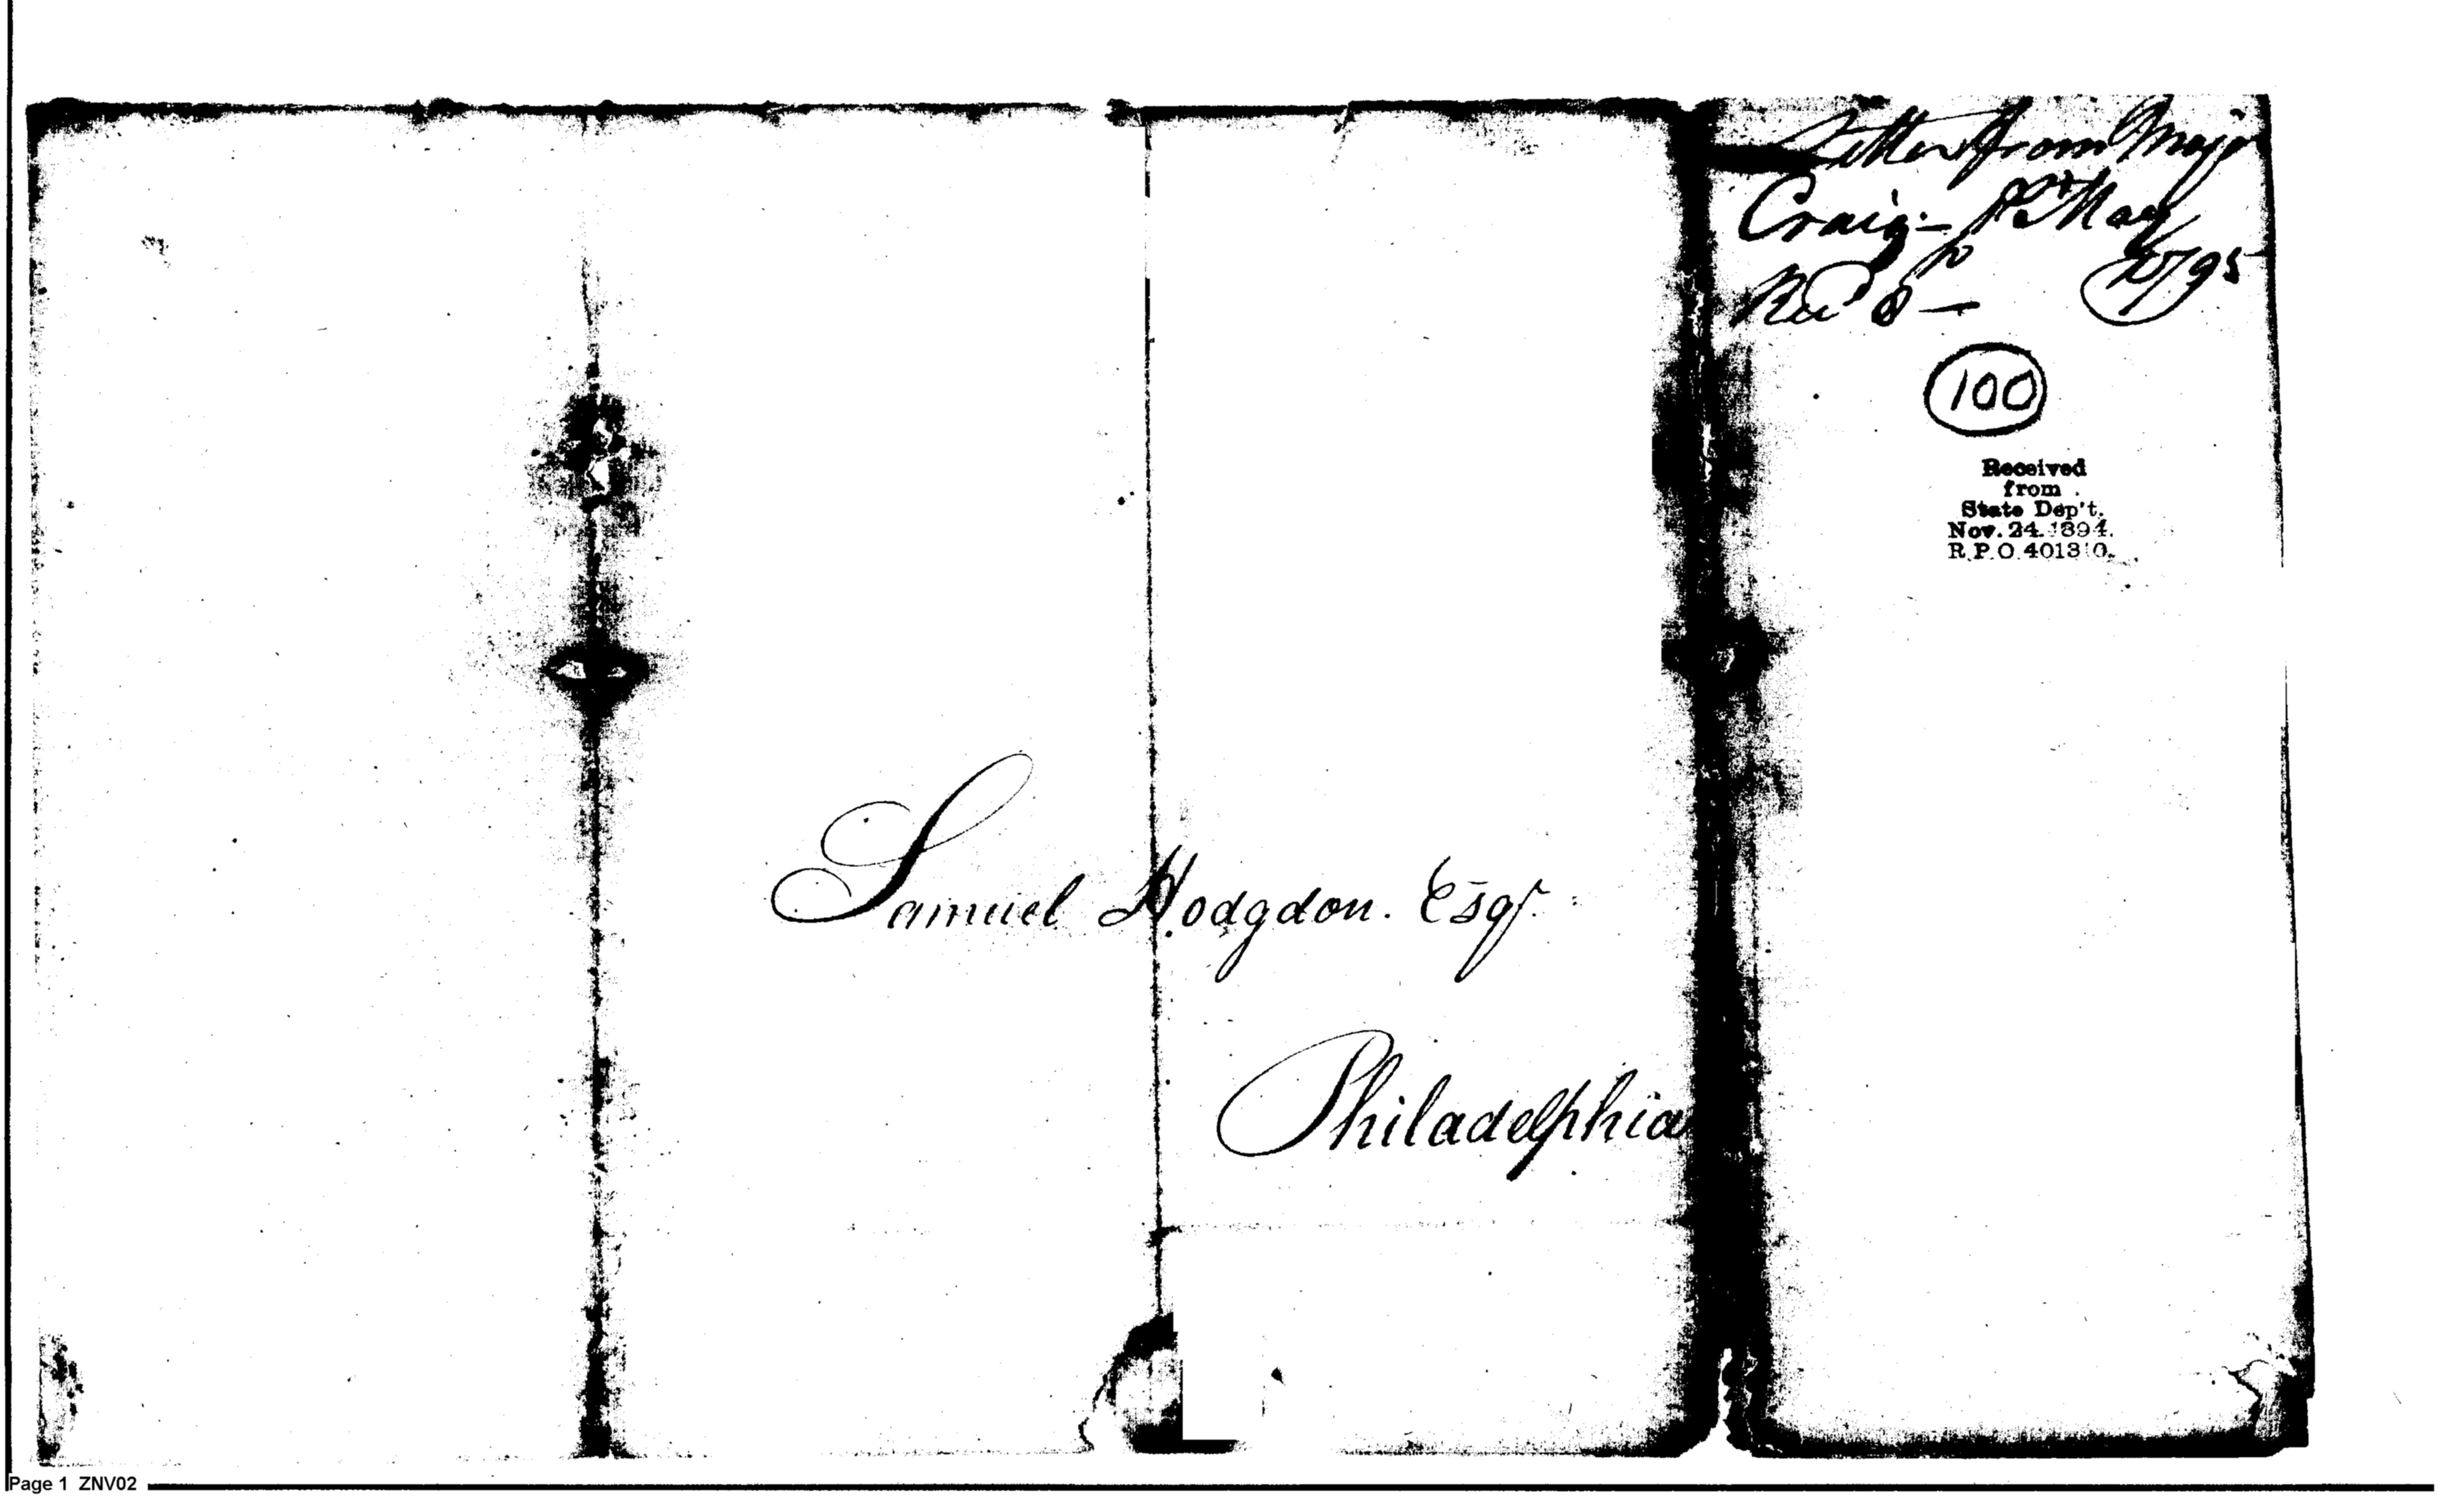 Samuel Hodgdon. Esqr.
Philadelphia
Letter from Major
Craig - 1st May
1795
Recd 8 -
100
Received
from
State Dep't.
Nov. 24. 1894.
R.P.O. 401310.
Page 1 ZNV02